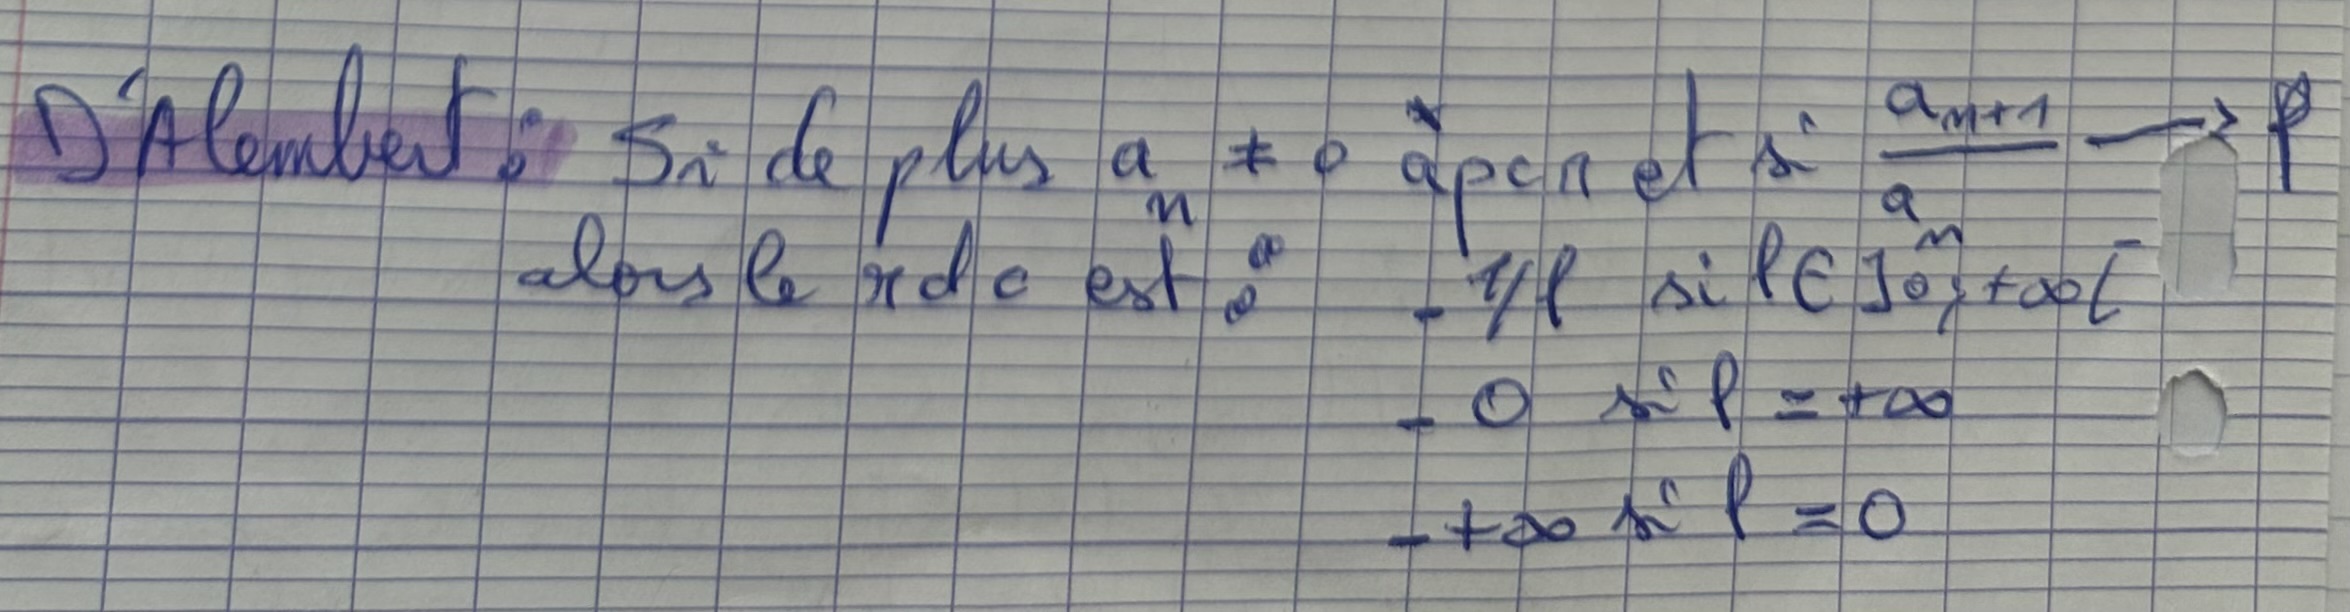 D'Alembert : Si de plus aₙ ≠ 0 àpcr et si aₙ₊₁/aₙ → ℓ
alors le rdc est : - 1/ℓ si ℓ ∈ ]0;+∞[
- 0 si ℓ = +∞
- +∞ si ℓ = 0